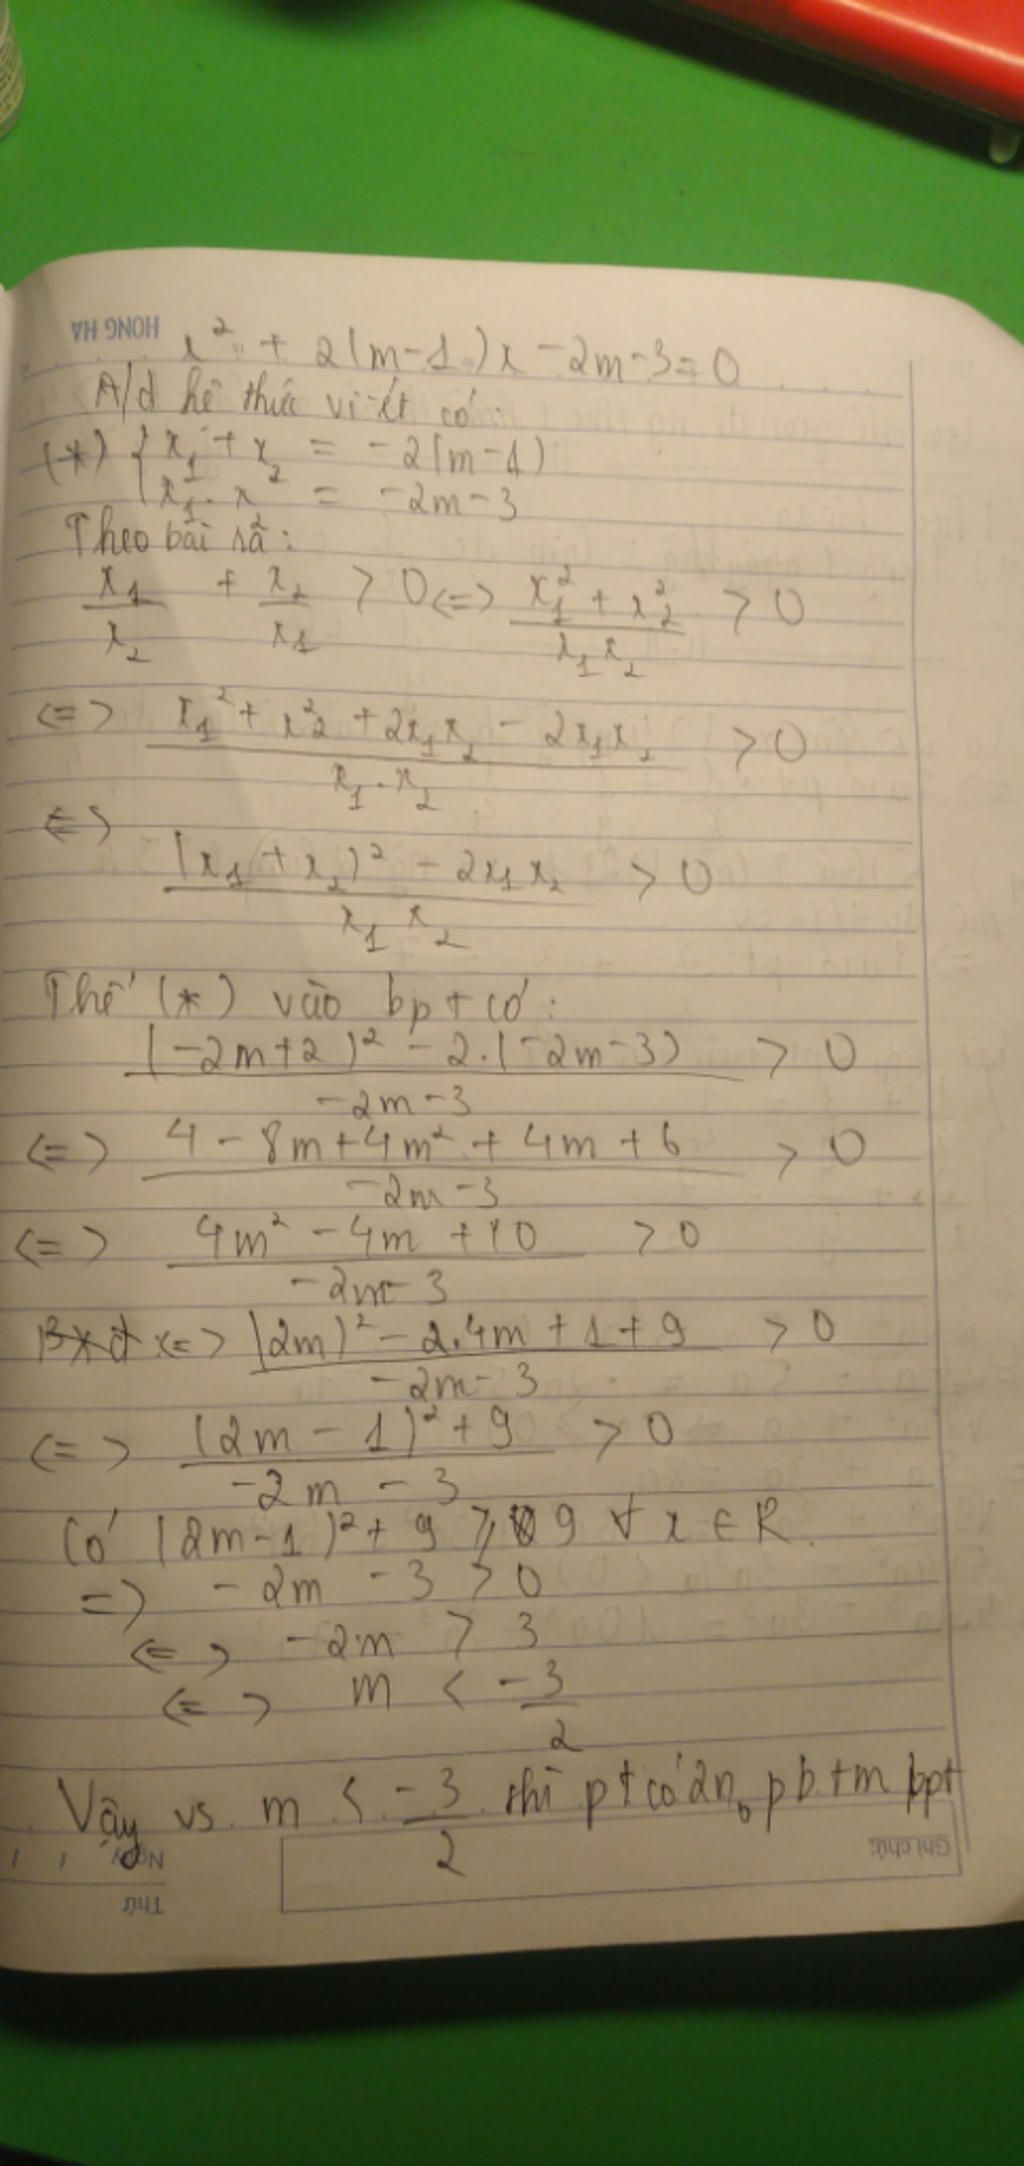 HONG HA
x² + 2(m-1)x - 2m-3=0
A/d hệ thức vi-ét có:
(*) { x₁ + x₂ = -2(m-1)
x₁ . x₂ = -2m-3
Theo bài ra:
x₁/x₂ + x₂/x₁ > 0 <=> (x₁² + x₂²)/(x₁x₂) > 0
<=> (x₁² + x₂² + 2x₁x₂ - 2x₁x₂)/(x₁.x₂) > 0
<=>
((x₁ + x₂)² - 2x₁x₂)/(x₁ x₂) > 0
Thế (*) vào bpt có:
((-2m+2)² - 2.(-2m-3))/(-2m-3) > 0
<=> (4 - 8m+4m² + 4m + 6)/(-2m-3) > 0
<=> (4m² - 4m + 10)/(-2m-3) > 0
<=> ((2m)² - 2.4m + 1 + 9)/(-2m-3) > 0
<=> ((2m - 1)² + 9)/(-2m - 3) > 0
Có (2m-1)² + 9 ⩾ 9 ∀ x ∈ R.
=> -2m - 3 > 0
<=> -2m > 3
<=> m < -3/2
Vậy vs m < -3/2 thì pt có 2n₀ pb tm bpt
Ghi chú:
Ngày / /
Thứ